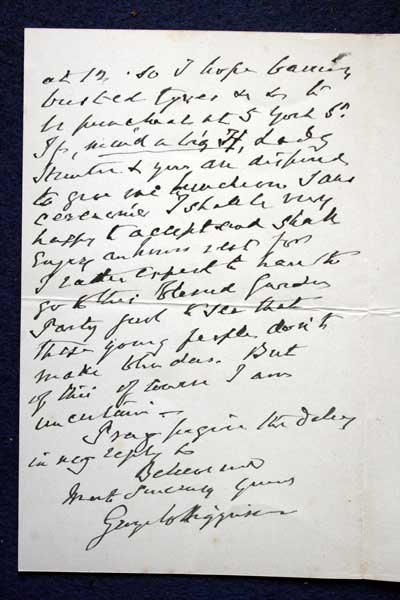 at 12. so I hope barring
busted tyres & & to
be punctual at 5 York St.
If, mind a big If, Lady
& you are disposed
to give me luncheon sans
ceremonie I shall be very
happy to accept and shall
enjoy an hours rest for
I rather expect to have to
go to this Blessed Garden
Party just to see that
these young people don't
make blunders. But
of this of course I am
uncertain –
Pray forgive the delay
in my reply &
Believe me
Most Sincerely yours
George W Higginson